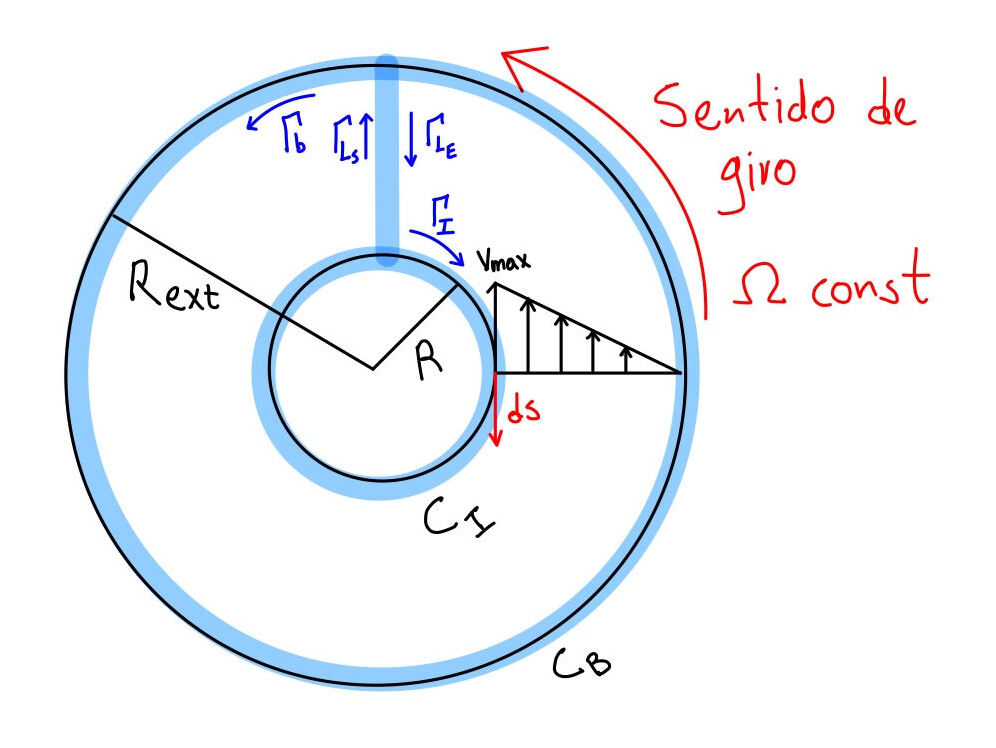 Sentido de
giro
Ω const
Γb
ΓLs
ΓLE
ΓI
Vmax
Rext
R
ds
CI
CB